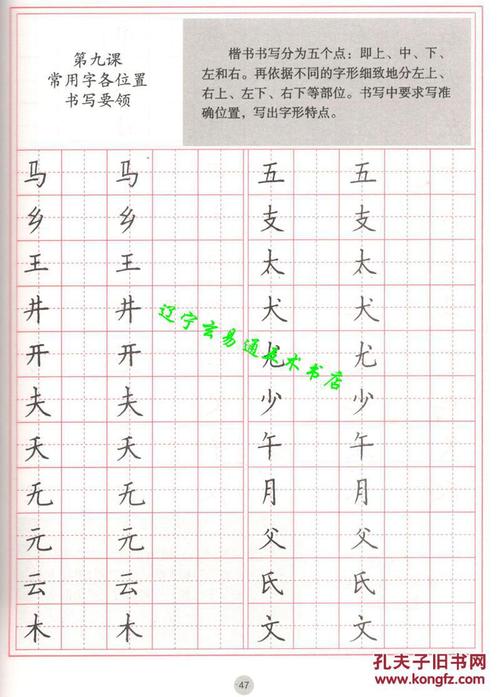 第九课
常用字各位置
书写要领
楷书书写分为五个点：即上、中、下、
左和右。再依据不同的字形细致地分左上、
右上、左下、右下等部位。书写中要求写准
确位置，写出字形特点。
马 马 五 五
乡 乡 支 支
王 王 太 太
井 井 犬 犬
开 开 尤 尤
夫 夫 少 少
天 天 午 午
无 无 月 月
元 元 父 父
云 云 氏 氏
木 木 文 文
辽宁玄易通美术书店
47
孔夫子旧书网
www.kongfz.com